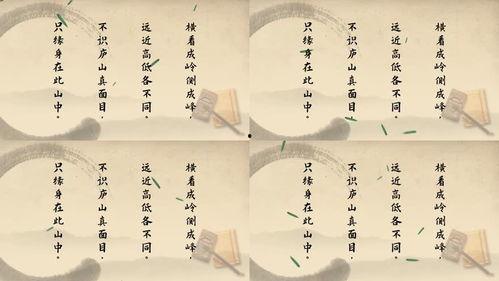 横看成岭侧成峰，
远近高低各不同。
不识庐山真面目，
只缘身在此山中。
横看成岭侧成峰，
远近高低各不同。
不识庐山真面目，
只缘身在此山中。
横看成岭侧成峰，
远近高低各不同。
不识庐山真面目，
只缘身在此山中。
横看成岭侧成峰，
远近高低各不同。
不识庐山真面目，
只缘身在此山中。